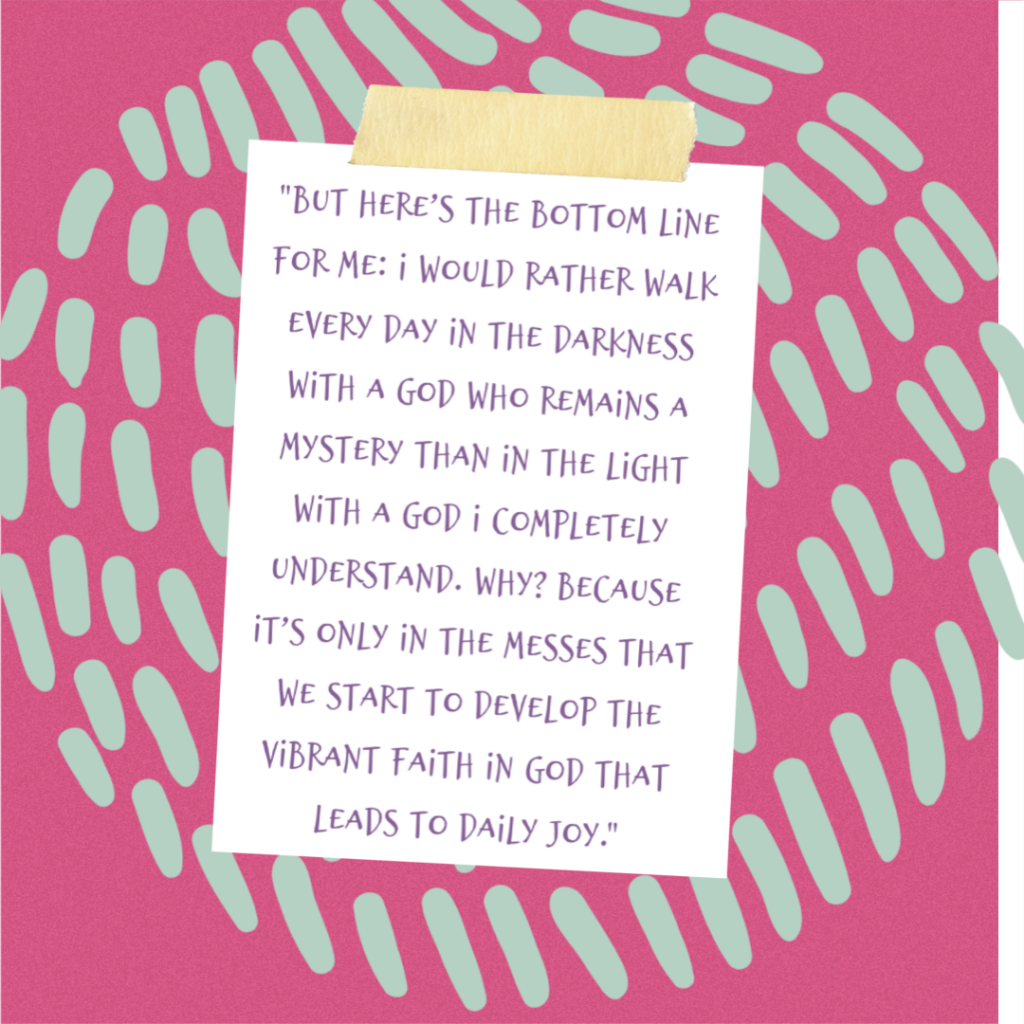 "BUT HERE'S THE BOTTOM LiNE
FOR ME: i WOULD RATHER WALK
EVERY DAY iN THE DARKNESS
WiTH A GOD WHO REMAiNS A
MYSTERY THAN iN THE LiGHT
WiTH A GOD i COMPLETELY
UNDERSTAND. WHY? BECAUSE
iT'S ONLY iN THE MESSES THAT
WE START TO DEVELOP THE
ViBRANT FAiTH iN GOD THAT
LEADS TO DAiLY JOY."